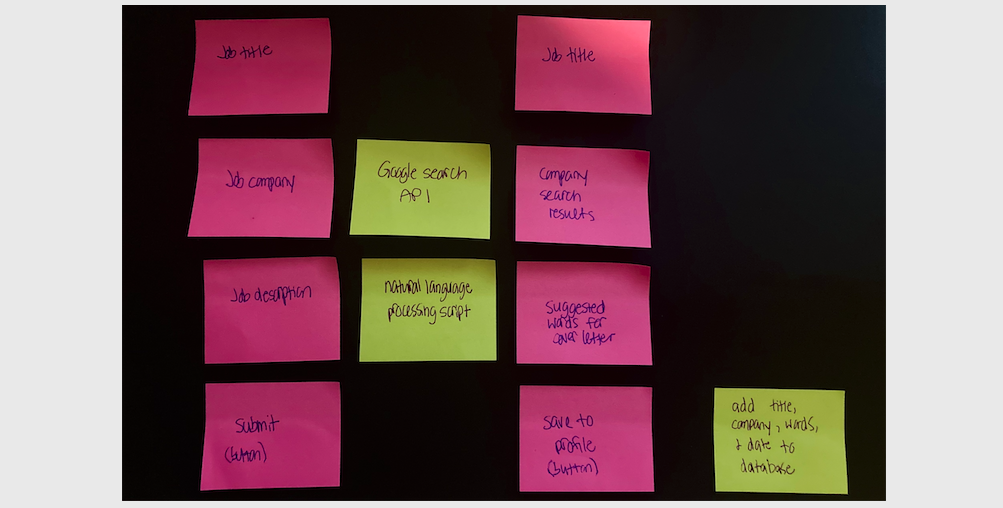 Job title
Job title
Job company
Google search
API
company
search
results
Job description
natural language
processing script
suggested
words for
cover letter
Submit
(button)
save to
profile
(button)
add title,
company, words,
& date to
database